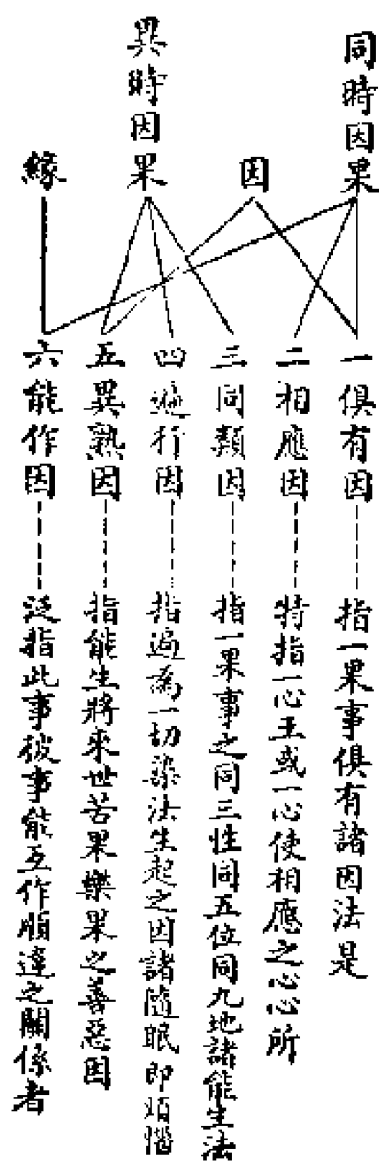 同時因果
因
異時因果
緣
一俱有因……指一果事俱有諸因法是
二相應因……特指一心王或一心使相應之心心所
三同類因……指一果事之同三性同五位同九地諸能生法
四遍行因……指遍為一切染法生起之因諸隨眠即煩惱
五異熟因……指能生將來世苦果樂果之善惡因
六能作因……泛指此事彼事能互作順違之關係者